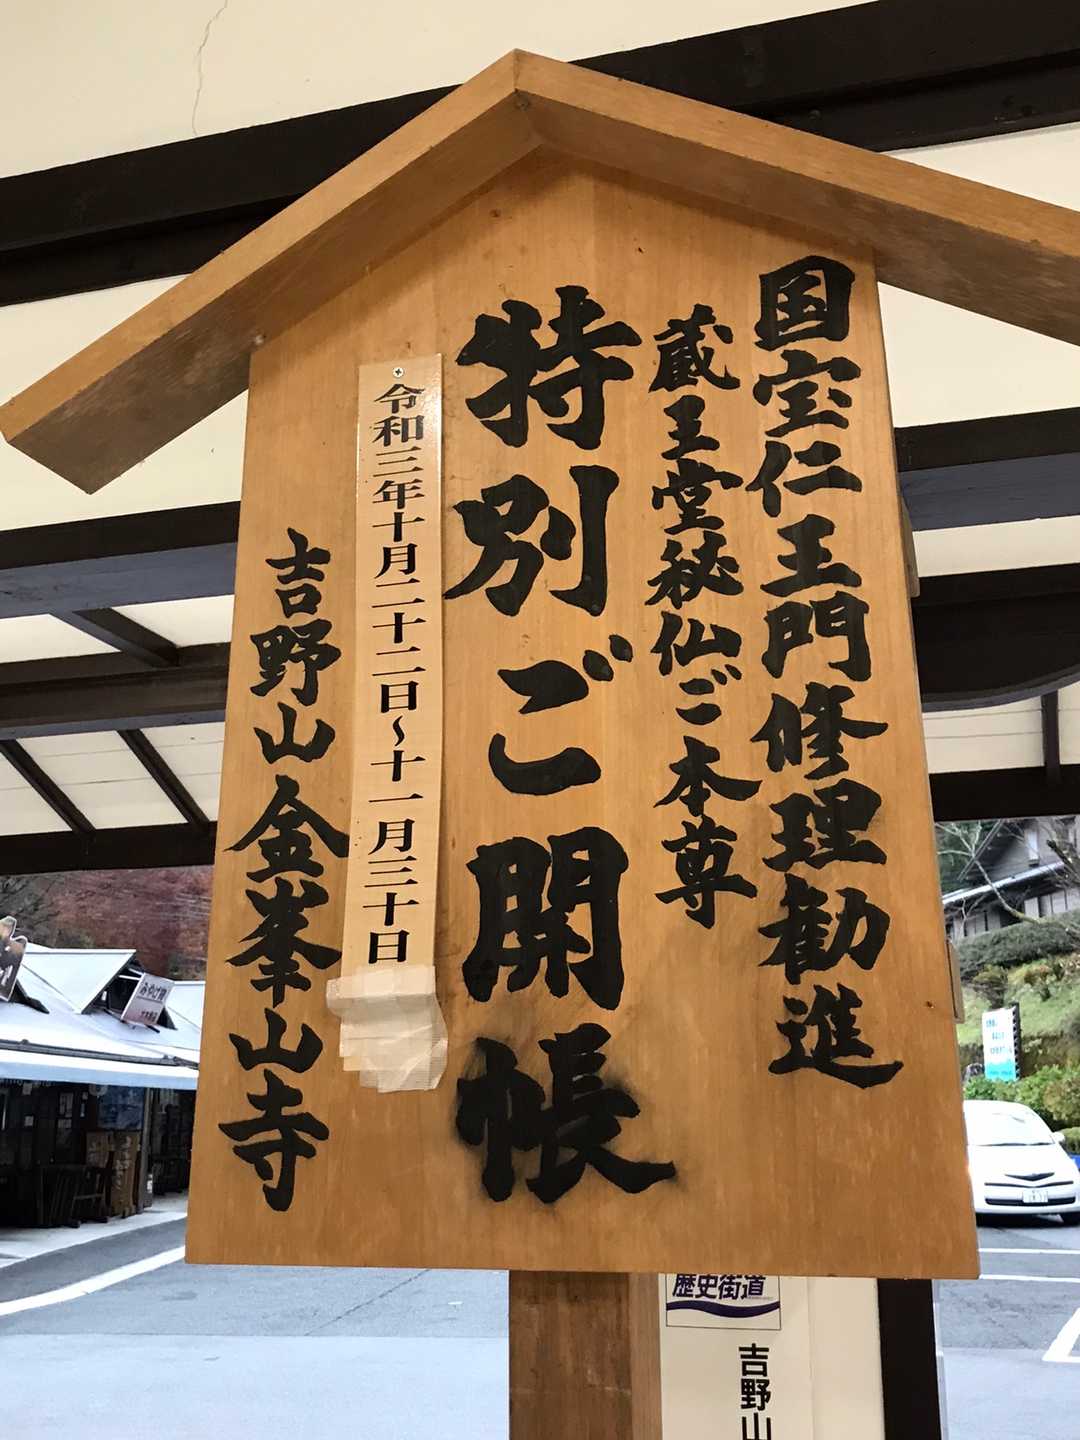 国宝仁王門修理勧進
蔵王堂秘仏ご本尊
特別ご開帳
令和三年十月二十二日～十一月三十日
吉野山金峯山寺
歴史街道
吉野山
みやげ物